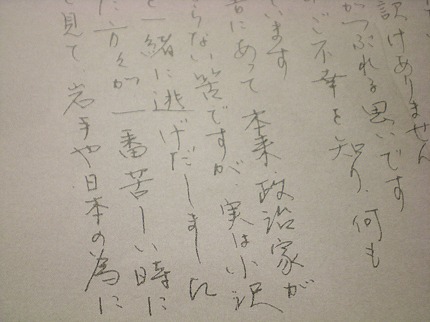 訳けありません
がつぶれる思いです
ご不幸を知り、何も
います
にあって本来、政治家が
らない筈ですが、実は小沢
と一緒に逃げだしました
た方々が一番苦しい時に
見て岩手や日本の為に